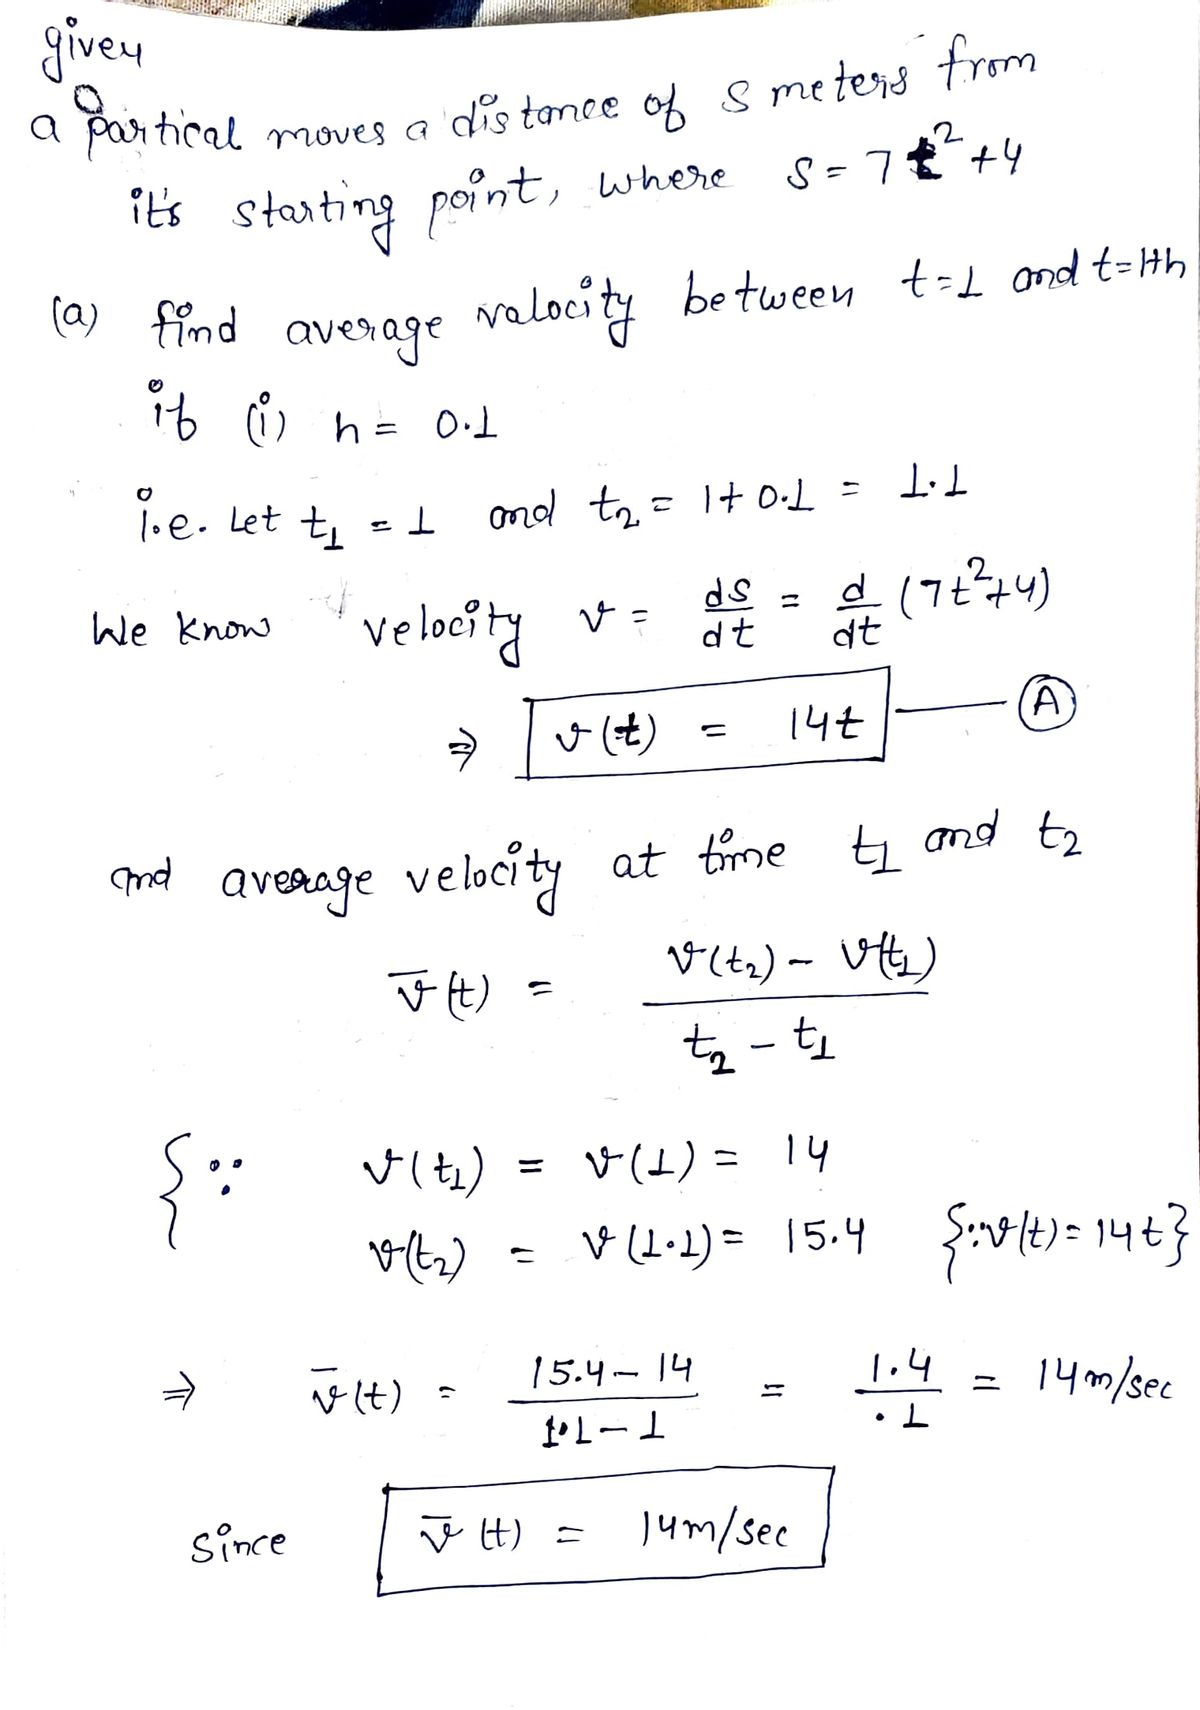 given
a partical moves a distance of s meters from
it's starting point, where s = 7t²+4
(a) find average valocity between t=1 and t=1+h
if (i) h = 0.1
i.e. Let t₁ = 1 and t₂ = 1+0.1 = 1.1
We know velocity v = ds/dt = d/dt (7t²+4)
⇒ v(t) = 14t — (A)
and average velocity at time t₁ and t₂
v̅(t) = (v(t₂) - v(t₁)) / (t₂ - t₁)
{∵ v(t₁) = v(1) = 14
v(t₂) = v(1.1) = 15.4 {∵v(t)=14t}
⇒ v̅(t) = (15.4-14) / (1.1-1) = 1.4/.1 = 14m/sec
since v̅(t) = 14m/sec